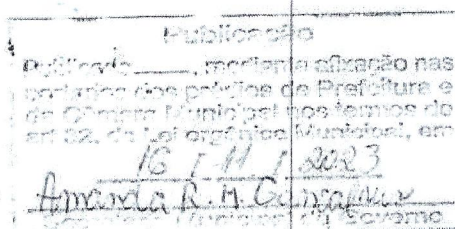 Publicação
Publicado ____, mediante afixação nas
portarias dos prédios da Prefeitura e
da Câmara Municipal nos termos do
art 92, da Lei orgânica Municipal, em
16 / 11 / 2023
Amanda R. M. Gonçalves
Municipal de Governo